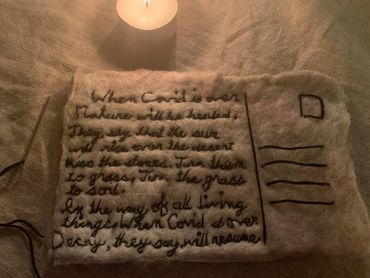 When Covid is over
Nature will be healed.
They say that the sun
will rise over the desert
kiss the stones. Turn them
to grass, Turn the grass
to soil.
In the way of all living
things. When Covid is over
Decay, they say, will resume